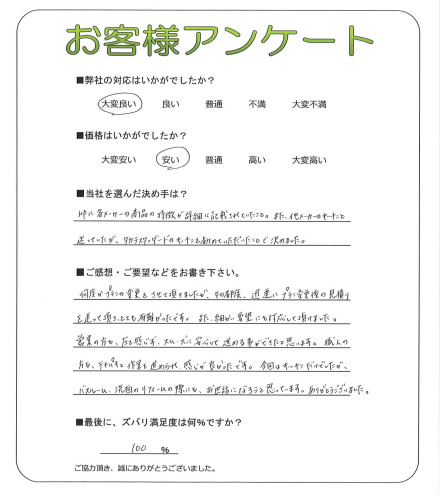 お客様アンケート
■弊社の対応はいかがでしたか？
大変良い 良い 普通 不満 大変不満
■価格はいかがでしたか？
大変安い 安い 普通 高い 大変高い
■当社を選んだ決め手は？
HPに各メーカーの商品の特徴が詳細に記載されていたこと。また、他メーカーのキッチンと
迷っていたが、タカラスタンダードのキッチンを勧めていただいたことで決めました。
■ご感想・ご要望などをお書き下さい。
何度かプランの変更をさせて頂きましたが、その都度、迅速にプラン変更後の見積り
を送って頂き、とても有難かったです。また、細かい要望にも対応して頂けました。
営業の方も、感じが、スムーズに安心して進める事ができたと思います。職人の
方も、テキパキと作業を進められ、感じが良かったです。今回はキッチンだけでしたが、
バスルーム、洗面のリフォームの際にも、お世話になろうと思っています。ありがとうございました。
■最後に、ズバリ満足度は何%ですか？
100 %
ご協力頂き、誠にありがとうございました。